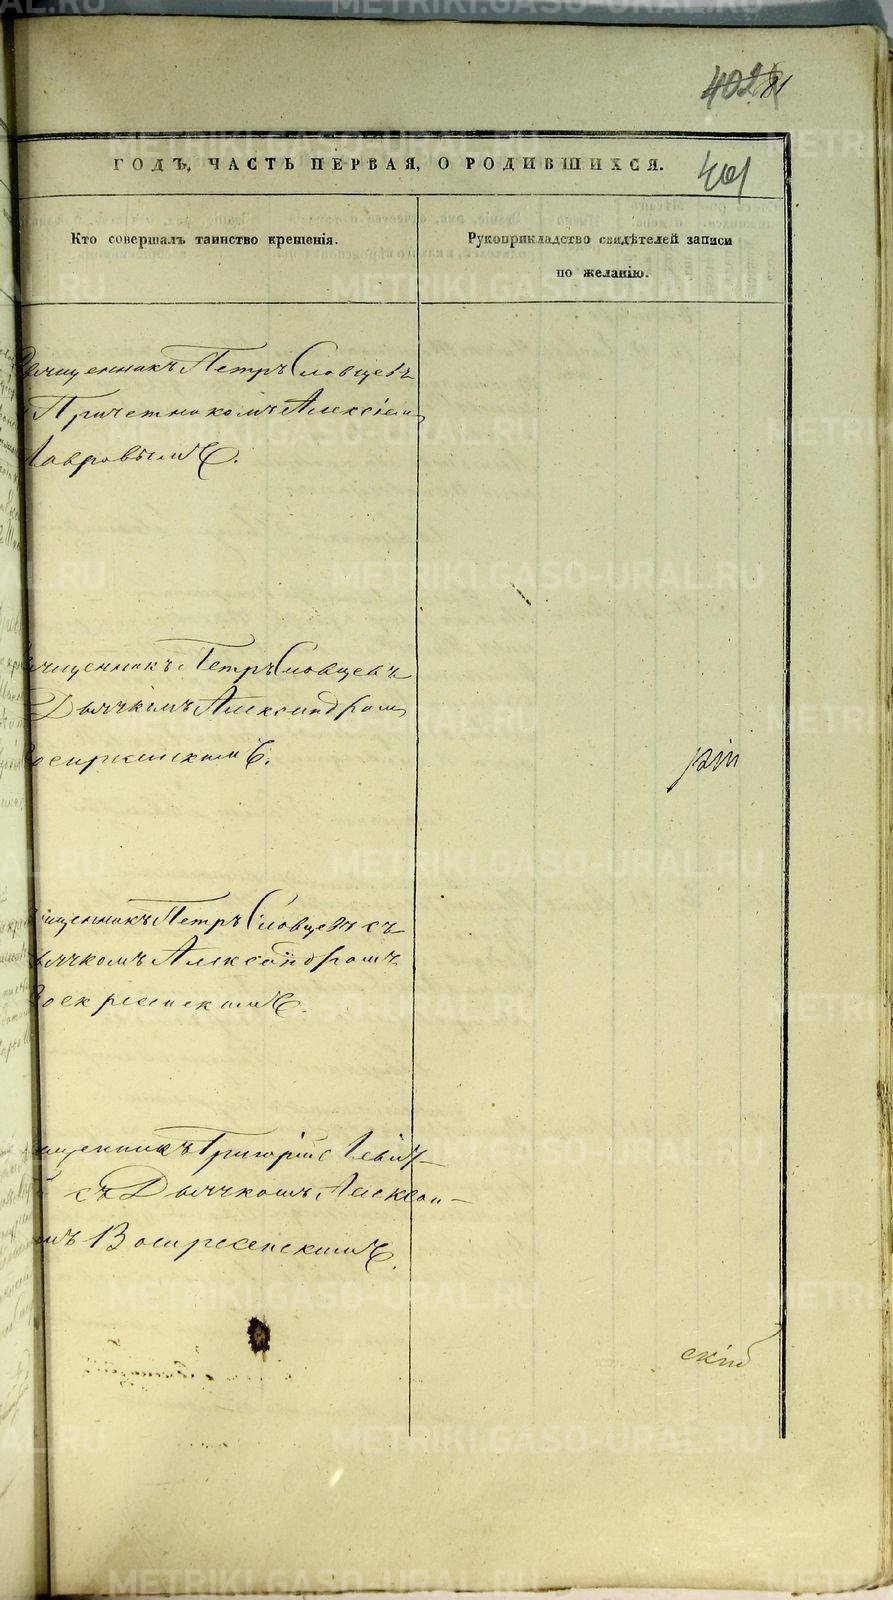 402 81
401
ГОДЪ, ЧАСТЬ ПЕРВАЯ, О РОДИВШИХСЯ.
Кто совершалъ таинство крещенія.
Рукоприкладство свидѣтелей записи
по желанію.
Священникъ Петръ Словцевъ
Причетникомъ Алексѣем
Лавровымъ.
Священникъ Петръ Словцевъ
Дьячкомъ Александром
Воскресенскимъ.
рій
Священникъ Петръ Словцевъ съ
Дьячкомъ Александромъ
Воскресенскимъ.
щенникъ Григорій
съ Дьячкомъ Алексан-
мъ Воскресенскимъ.
скій
METRIKI.GASO-URAL.RU